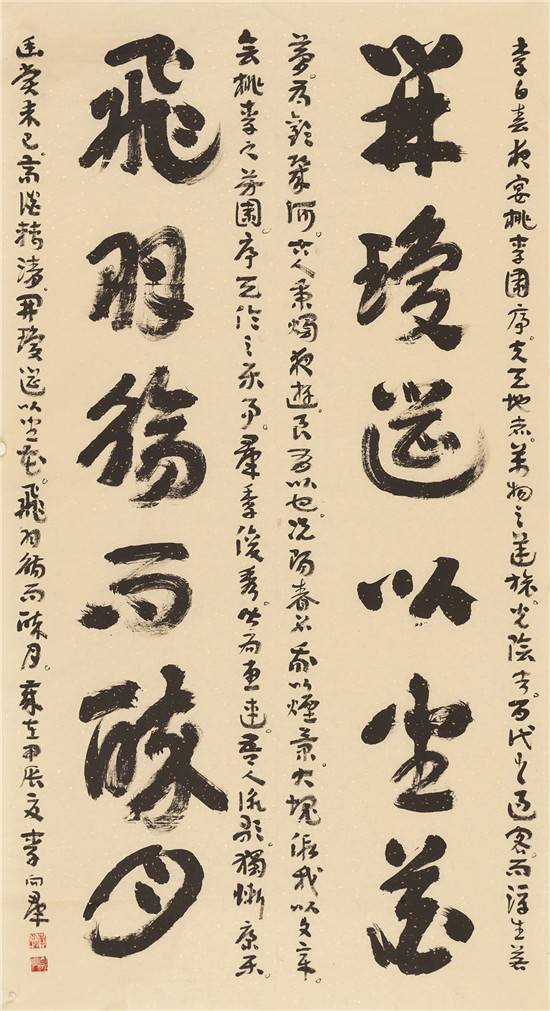 李白春夜宴桃李園序夫天地者。萬物之逆旅。光陰者。百代之過客。而浮生若
開瓊筵以坐花
夢。為歡幾何。古人秉燭夜遊。良有以也。況陽春召我以煙景。大塊假我以文章。
會桃李之芳園。序天倫之樂事。羣季俊秀。皆為惠連。吾人詠歌。獨慚康樂。
飛羽觴而醉月
幽賞未已。高談轉清。開瓊筵以坐花。飛羽觴而醉月。歲在甲辰夏李向羣